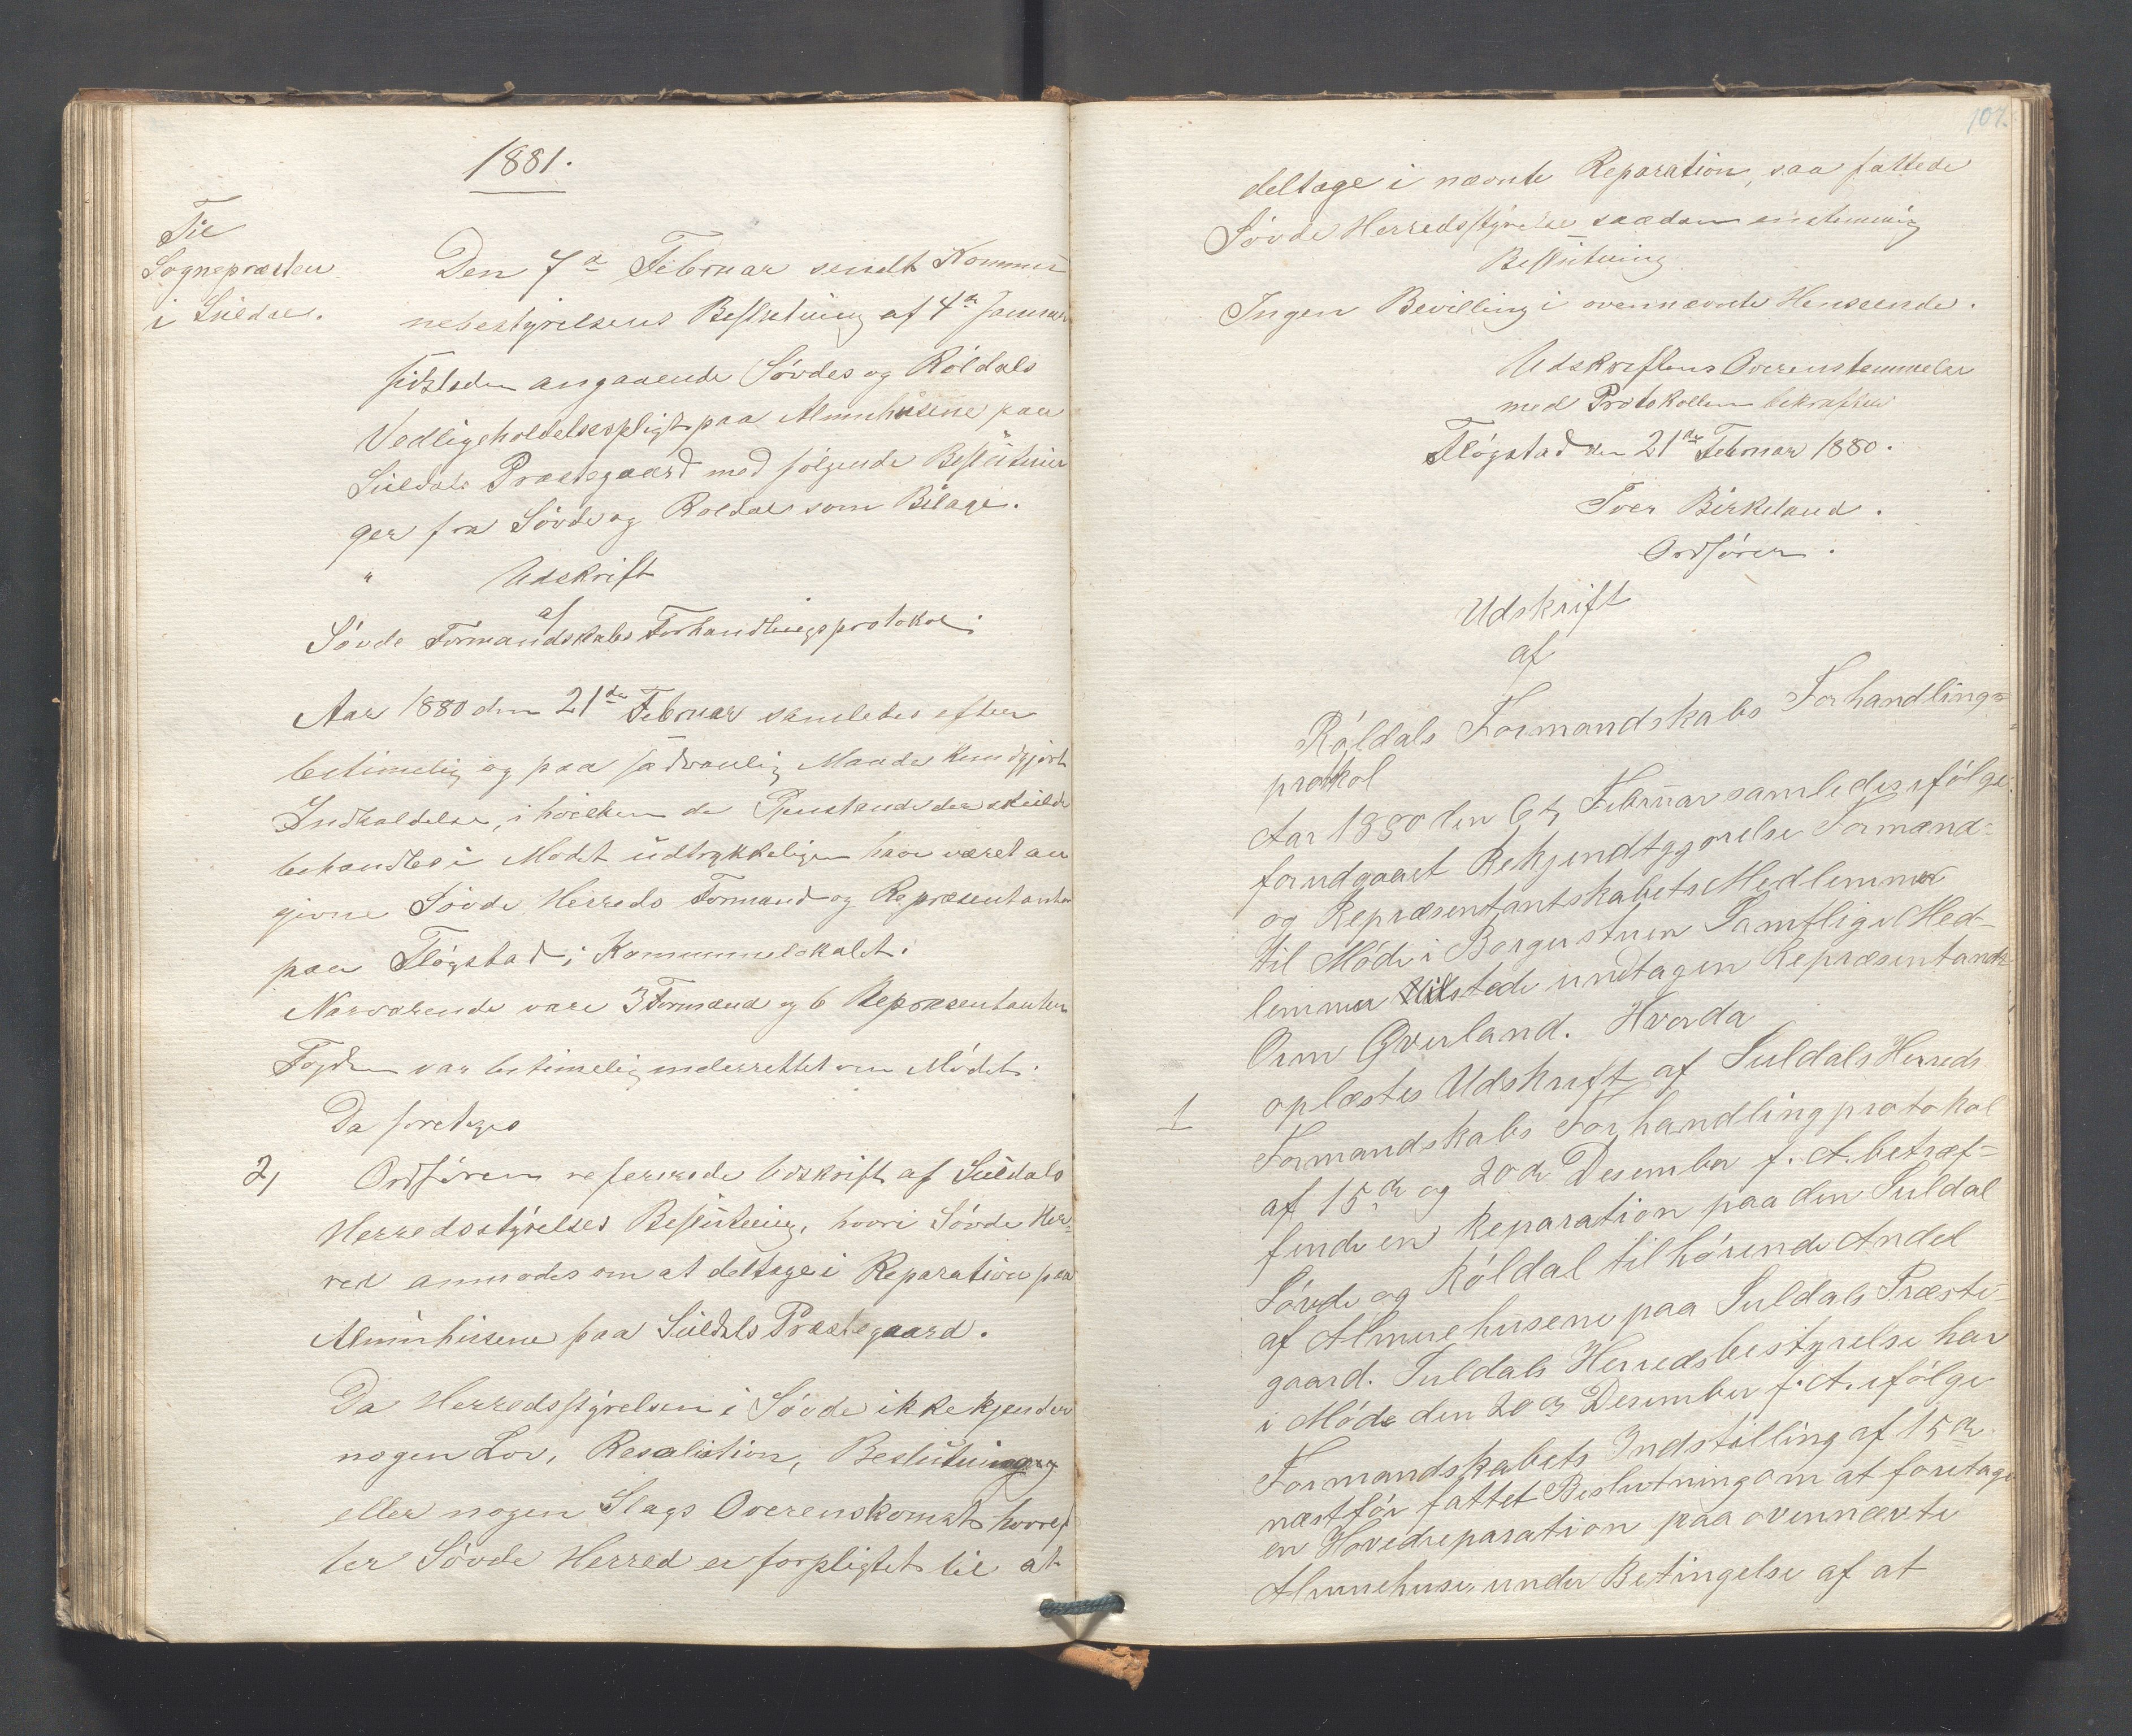 1881.
Til
Sognepræsten
i Suldal.
Den 7de Februar sendt Kommu-
nebestyrelsens Beslutning af 4de Januar
sidstleden angaaende Søvdes og Röldals
Vedligeholdelsespligt paa Almuehusene paa
Suldals Præstegaard med følgende Beslutnin
ger fra Søvde og Roldal som Bilage.
" Udskrift
af
Søvde Formandskabs Forhandlingsprotokol.
Aar 1880 den 21de Februar samledes efter
betimelig og paa sædvanlig Maade kundgjort
Indkaldelse, i hvilken de Gjenstande der skulde
behandles i Mødet udtrykkeligen have været an
givne Søvde Herreds Formænd og Repræsentanter
paa Fløgstad i Kommunelokalet.
Nærværende vare 3 Formænd og 6 Repræsentanter
Fogden var betimelig underrettet om Mødet.
Da foretoges
2, Ordføreren refererede Udskrift af Suldals
Herredsstyrelses Beslutning, hvori Søvde Her-
red anmodes om at deltage i Reparation paa
Almuehusene paa Suldals Præstegaard.
Da Herredsstyrelsen i Søvde ikke kjender
nogen Lov, Resolution, Beslutning
eller nogen Slags Overenskomst hvoref
ter Søvde Herred er forpligtet til at
107.
deltage i nævnte Reparation, saa fattede
Søvde Herredsstyrelse saadan enstemmig
Beslutning
Ingen Bevilling i ovennævnte Henseende.
Udskriftens Overenstemmelse
med Protokollen bekræftes
Fløgstad den 21de Februar 1880.
Iver Birkeland.
Ordfører.
Udskrift
af
Röldals Formandskabs Forhandlings=
protokol
Aar 1880 den 6te Februar samledes ifölge
forudgaaet Bekjendtgjørelse Formænd=
og Repræsentantskabets Medlemmer
til Möde i Borgerstuen Samtlige Med-
lemmer tilstede undtagen Repræsentant
Orm Overland. Hvorda
1 oplæstes Udskrift af Suldals Herreds
Formandskabs Forhandlingprotokol
af 15de og 20de Desember f. A. betræf=
fende en Reparation paa den Suldal
Søvde og Röldal tilhörende Andel
af Almuehusene paa Suldals Præste-
gaard. Suldals Herredsbestyrelse har
i Möde den 20de Desember f. A. ifölge
Formandskabets Indstilling af 15de
næstför fattet Beslutning om at foretage
en Hovedreparation paa ovennævte
Almuehuse, under Betingelse af at